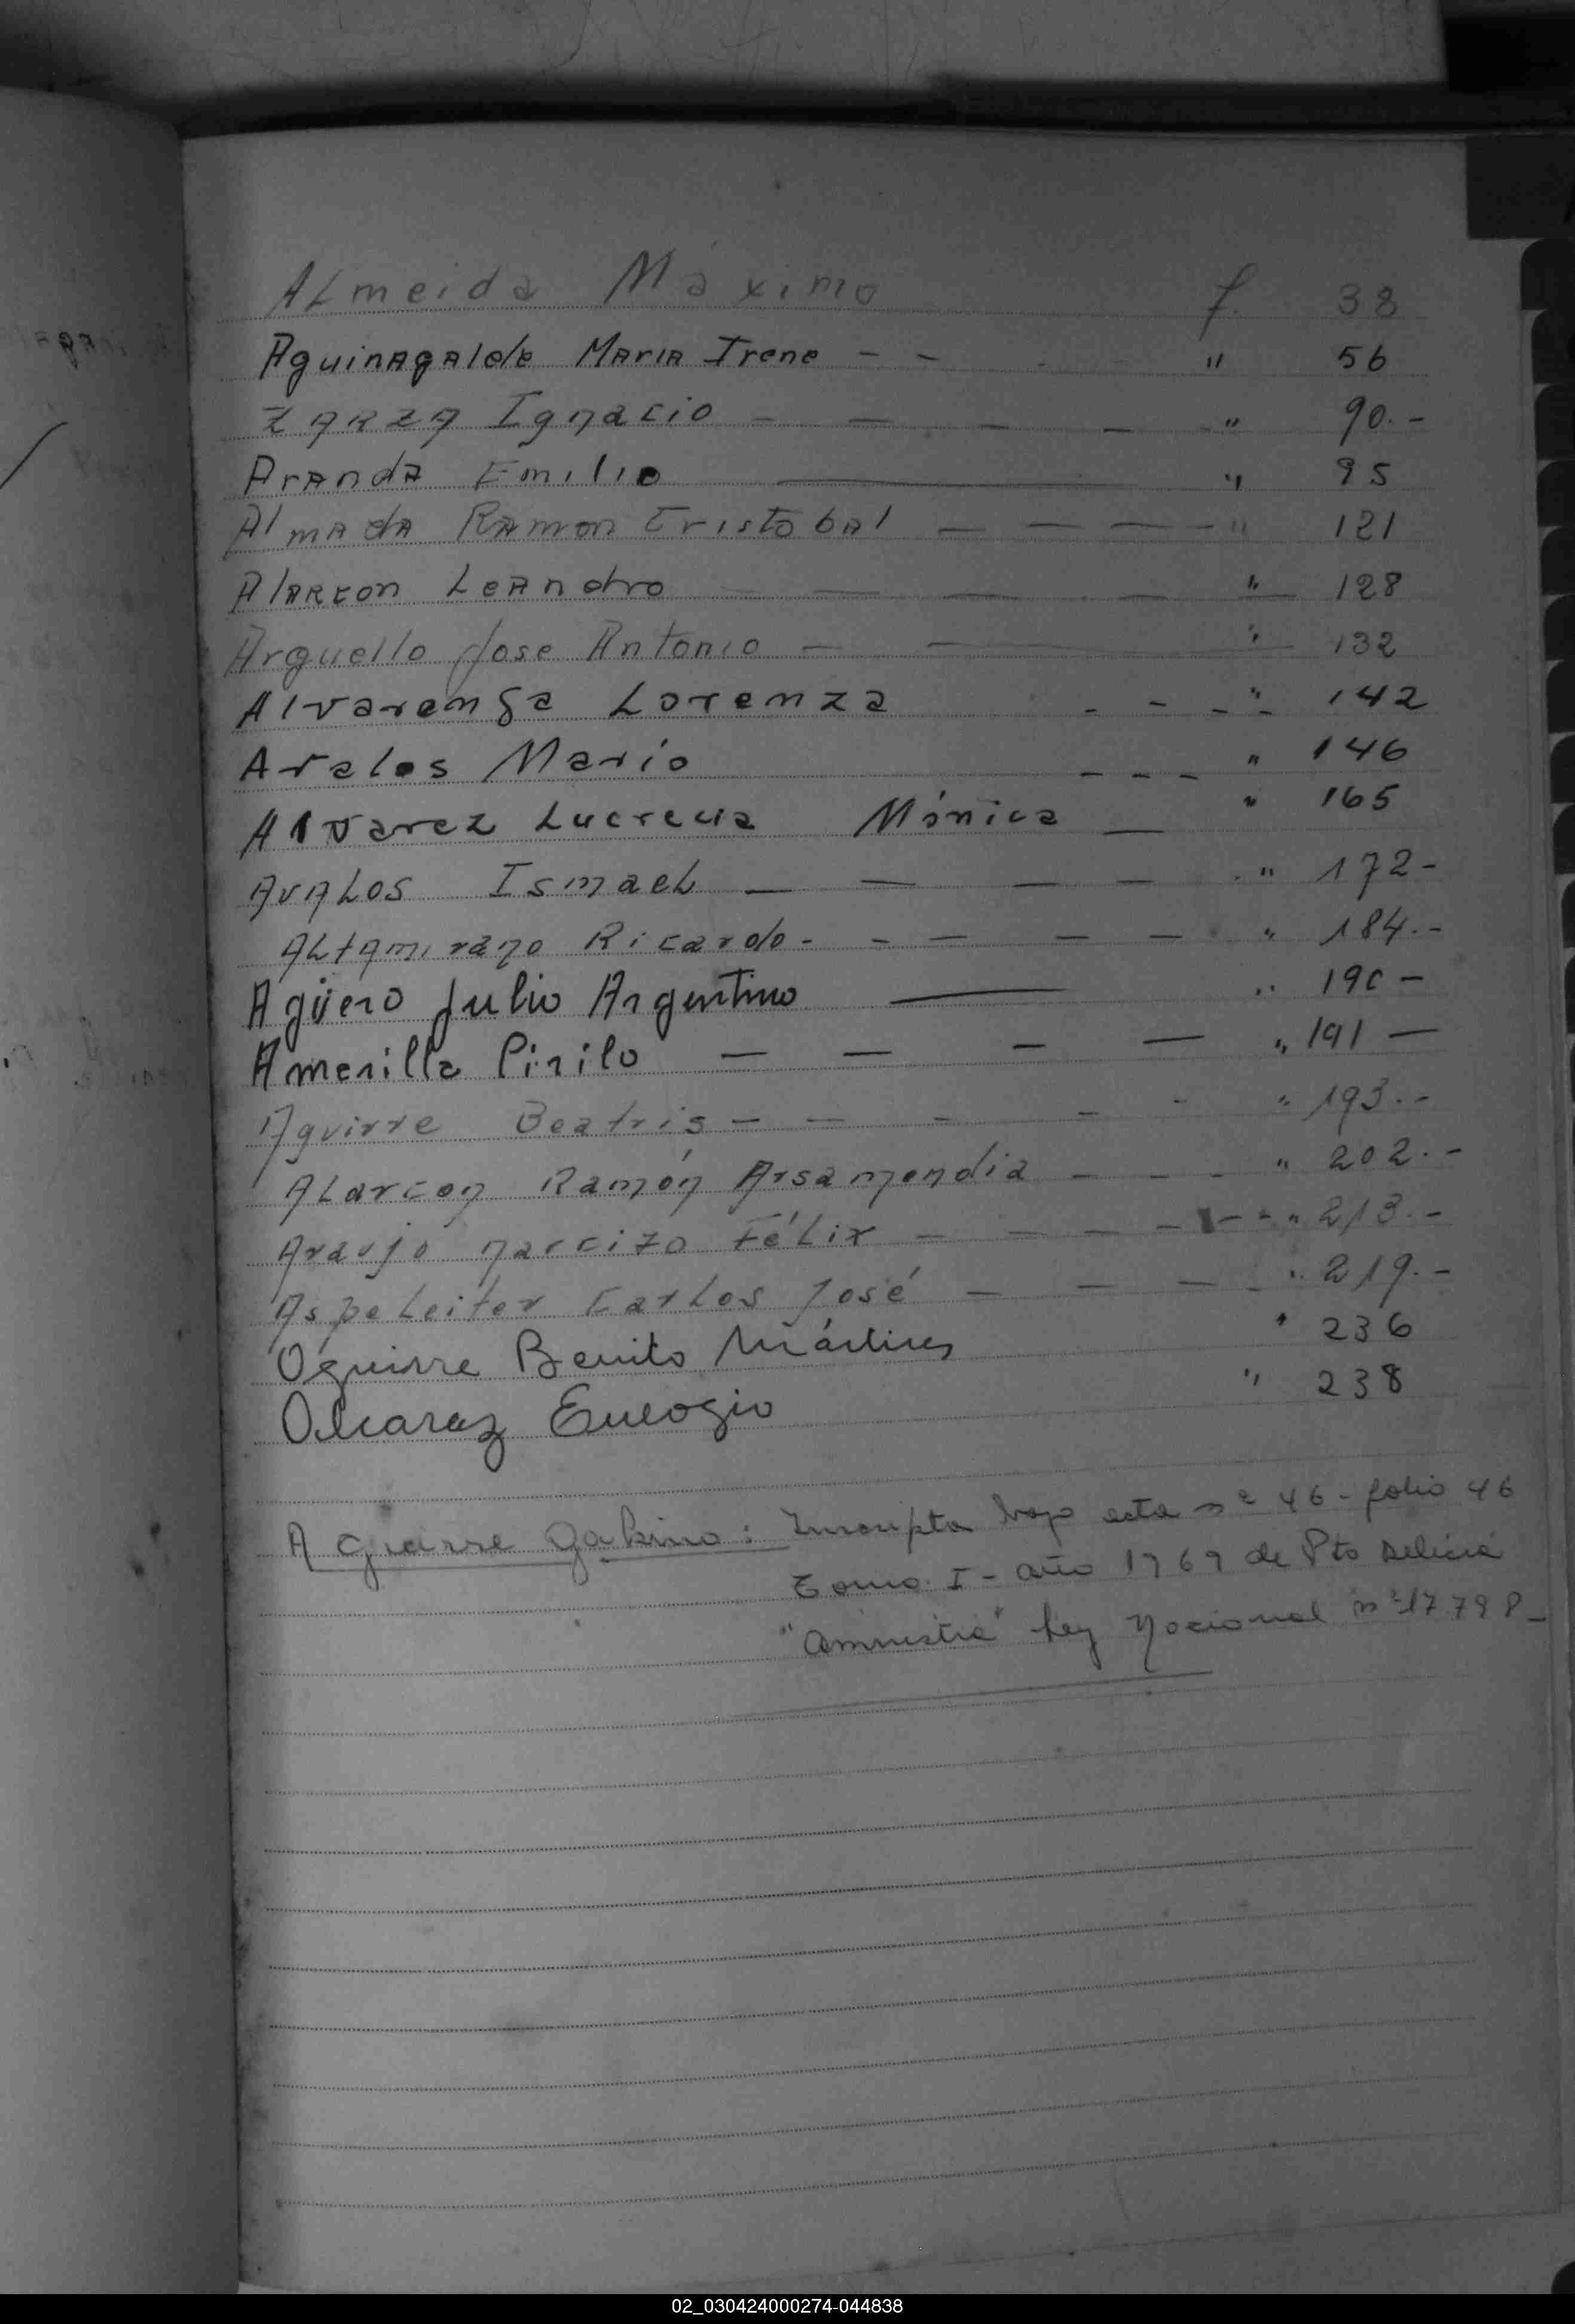 Almeida Máximo f. 38
Aguinagalde Maria Irene - - " 56
ZARZA Ignacio - - - - - " 90.-
Aranda Emilio — " 95
Almada Ramon Cristobal - - - - " 121
Alarcon Leandro - - - - " 128
Arguello Jose Antonio - - " 132
Alvarenga Lorenza - - - " - 142
Avalos Mario - - - " 146
Alvarez Lucrecia Mónica — " 165
Avalos Ismael - - - - . " 172-
Altamirano Ricardo. - - - - " 184.-
Agüero Julio Argentino — " 190 -
Amarilla Pirilo - - - - " 191 -
Aguirre Beatris - - - - - " 193.-
Alarcon Ramón Arsamendia - - - " 202.-
Araujo Narcizo Félix - - - - - - " 213.-
Aspeleiter Carlos José - - - - " 219.-
Aguirre Benito Mártires " 236
Alcaraz Eulogio " 238
Aguirre Gabino: Inscripta bajo acta nº 46 - folio 46
Tomo I - año 1969 de Pto Delicia
"Amnistia" Ley Nacional nº 17798-
02_030424000274-044838